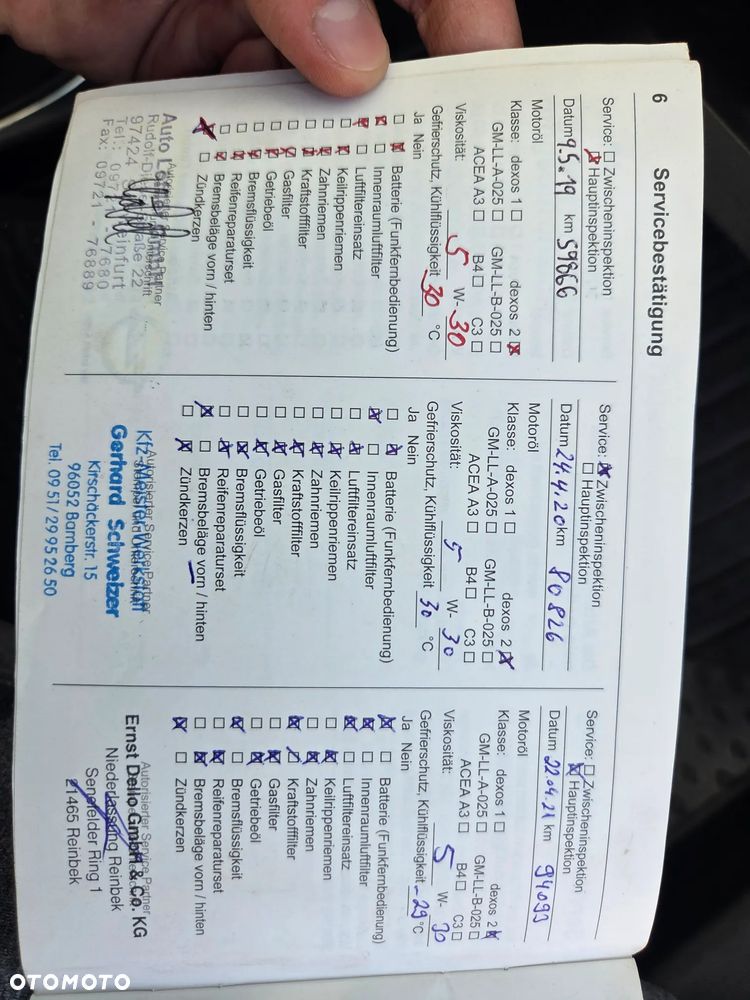 6
Servicebestätigung
Service: ☐ Zwischeninspektion
☒ Hauptinspektion
Datum 9.5.19 km 59866
Motoröl
Klasse: dexos 1 ☐ dexos 2 ☒
GM-LL-A-025 ☐ GM-LL-B-025 ☐
ACEA A3 ☐ B4 ☐ C3 ☐
Viskosität: 5 W- 30
Gefrierschutz, Kühlflüssigkeit 30 °C
Ja Nein
☐ ☒ Batterie (Funkfernbedienung)
☒ ☐ Innenraumluftfilter
☒ ☐ Luftfiltereinsatz
☐ ☒ Keilrippenriemen
☐ ☒ Zahnriemen
☐ ☒ Kraftstofffilter
☐ ☒ Gasfilter
☐ ☒ Getriebeöl
☐ ☒ Bremsflüssigkeit
☐ ☒ Reifenreparaturset
☐ ☒ Bremsbeläge vorn / hinten
☒ ☐ Zündkerzen
Auto
97424
76889
Service: ☒ Zwischeninspektion
☐ Hauptinspektion
Datum 24.4.20 km 80826
Motoröl
Klasse: dexos 1 ☐ dexos 2 ☒
GM-LL-A-025 ☐ GM-LL-B-025 ☐
ACEA A3 ☐ B4 ☐ C3 ☐
Viskosität: 5 W- 30
Gefrierschutz, Kühlflüssigkeit 30 °C
Ja Nein
☐ ☒ Batterie (Funkfernbedienung)
☒ ☐ Innenraumluftfilter
☐ ☒ Luftfiltereinsatz
☐ ☒ Keilrippenriemen
☐ ☒ Zahnriemen
☐ ☒ Kraftstofffilter
☐ ☒ Gasfilter
☐ ☒ Getriebeöl
☐ ☒ Bremsflüssigkeit
☐ ☒ Reifenreparaturset
☒ ☐ Bremsbeläge vorn / hinten
☐ ☒ Zündkerzen
Autorisierter Service Partner
Kfz-Meister-Werkstatt
Gerhard Schweizer
Kirschäckerstr. 15
96052 Bamberg
Tel. 09 51 / 29 95 26 50
Service: ☐ Zwischeninspektion
☒ Hauptinspektion
Datum 22.04.21 km 94093
Motoröl
Klasse: dexos 1 ☐ dexos 2 ☒
GM-LL-A-025 ☐ GM-LL-B-025 ☐
ACEA A3 ☐ B4 ☐ C3 ☐
Viskosität: 5 W- 30
Gefrierschutz, Kühlflüssigkeit -29 °C
Ja Nein
☒ ☐ Batterie (Funkfernbedienung)
☒ ☐ Innenraumluftfilter
☒ ☐ Luftfiltereinsatz
☐ ☒ Keilrippenriemen
☐ ☒ Zahnriemen
☒ ☐ Kraftstofffilter
☐ ☒ Gasfilter
☐ ☒ Getriebeöl
☒ ☐ Bremsflüssigkeit
☐ ☒ Reifenreparaturset
☐ ☒ Bremsbeläge vorn / hinten
☒ ☐ Zündkerzen
Autorisierter Service Partner
Ernst Dello GmbH & Co. KG
Niederlassung Reinbek
Senefelder Ring 1
21465 Reinbek
OTOMOTO